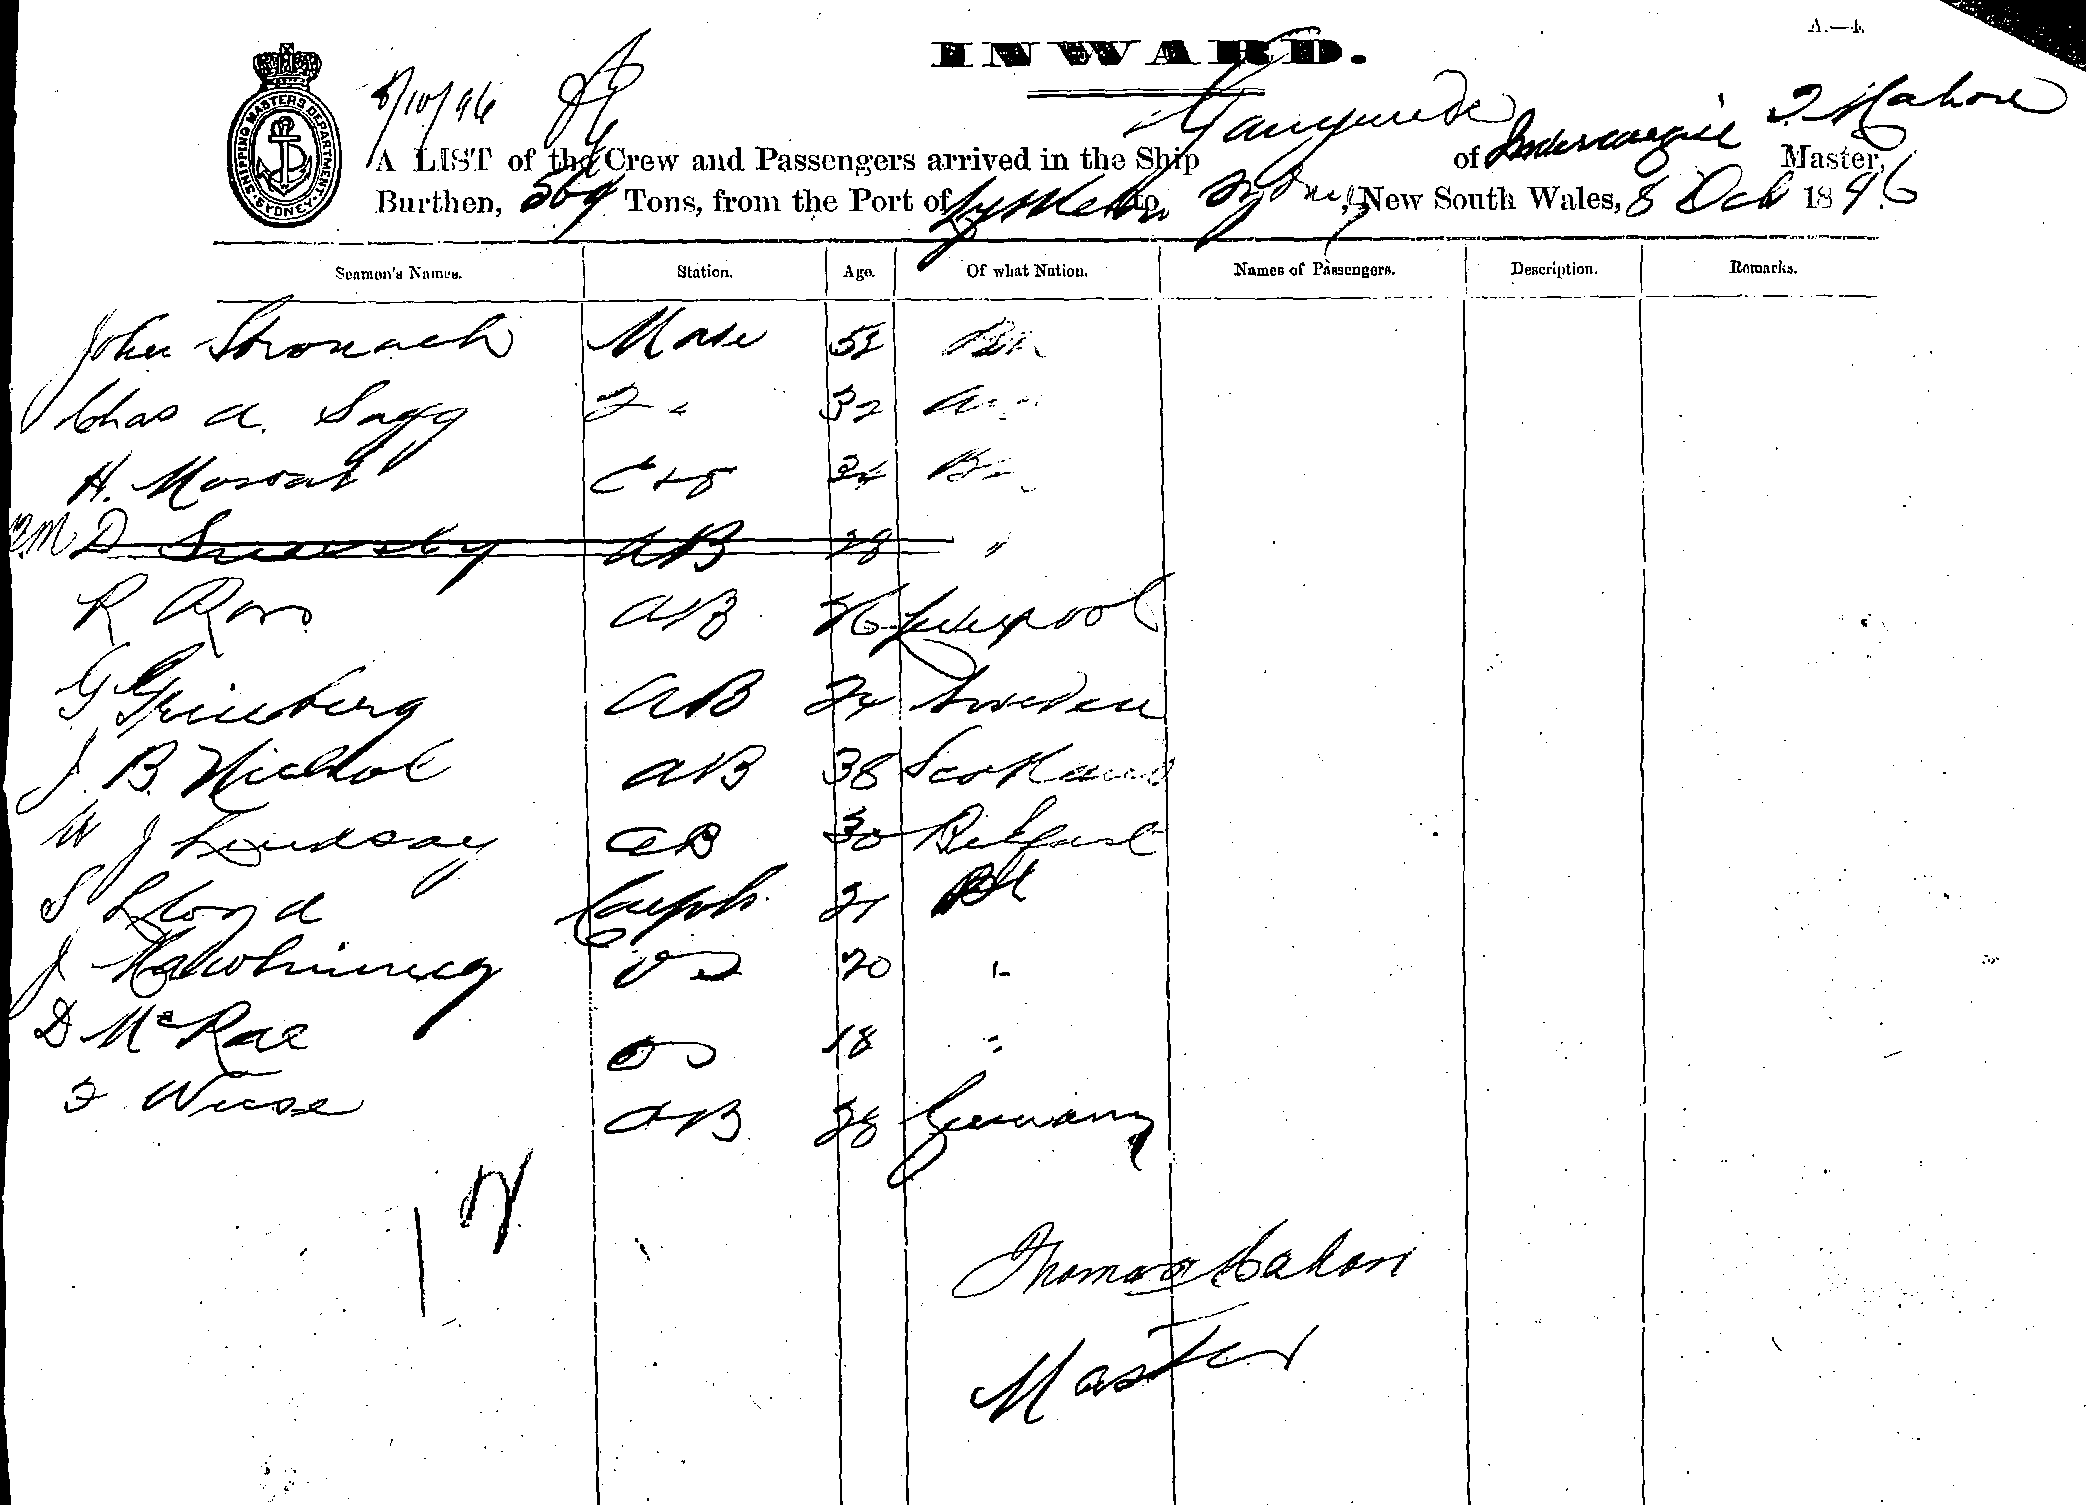 A.—4.
INWARD.
SHIPPING MASTERS DEPARTMENT SYDNEY
8/10/96
A LIST of the Crew and Passengers arrived in the Ship of Invercargill T. Mahon Master,
Burthen, 569 Tons, from the Port of Lyttelton to Sydney, New South Wales, 8 Oct 1896
Seamen's Names. Station. Age. Of what Nation. Names of Passengers. Description. Remarks.
John Stronach Mate 52
Chas A. Sagg 2 32
H. C & S 34 Br
D AB 28 "
R Ross AB 26 Liverpool
G Grineberg AB 24 Sweden
J. B. Nichol AB 38 Scotland
W J Lindsay AB 30 Belfast
S Lloyd 21
J Mawhinney OS 20 "
D McRae OS 18 "
F Wiese AB 28 Germany
12
Thomas Mahon
Master